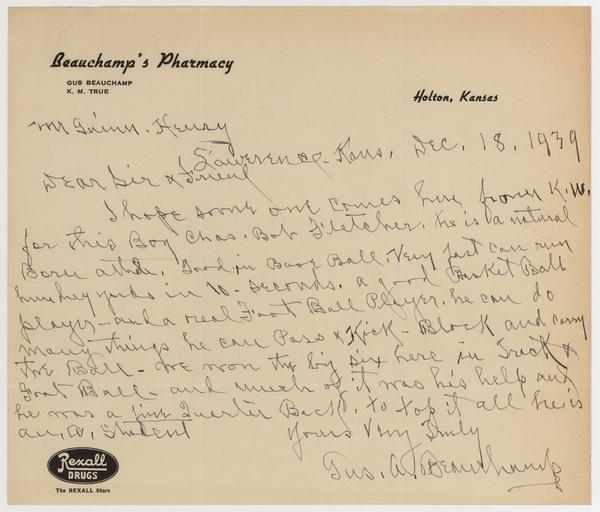 Beauchamp's Pharmacy
GUS BEAUCHAMP
K. M. TRUE
Holton, Kansas
Mr Henry
Lawerence, Kans. Dec. 18, 1939
Dear Sir & Friend
I hope some one comes here from K.U.
for this Boy Chas. Bob Fletcher. he is a natural
Born athlete. Good in Base Ball. Very fast can run
hundred yards in 10- seconds. a good Basket Ball
player - and a real Foot Ball Player. he can do
many things he can Pass & Kick - Block and carry
the Ball - we won the big six here in Track &
Foot Ball - and much of it was his help and
he was a fine Quarter Back. to top it all he is
an, A, Student
Yours Very Truly
Gus. A. Beauchamp
Rexall
DRUGS
The REXALL Store